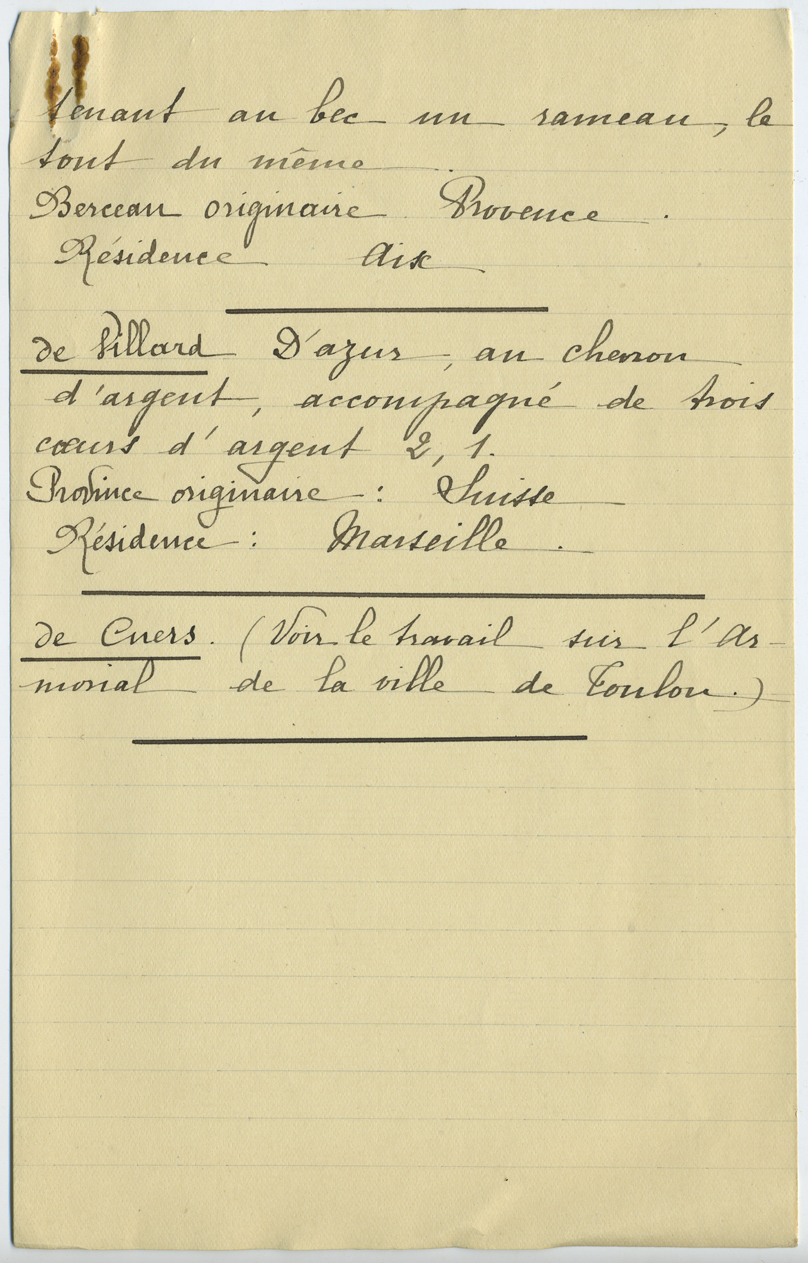 tenant au bec un rameau, le
tout du même.
Berceau originaire Provence.
Résidence Aix
de Villard D'azur, au chevron
d'argent, accompagné de trois
cœurs d'argent 2, 1.
Province originaire : Suisse
Résidence : Marseille.
de Cuers. (Voir le travail sur l'Ar-
morial de la ville de Toulon.)